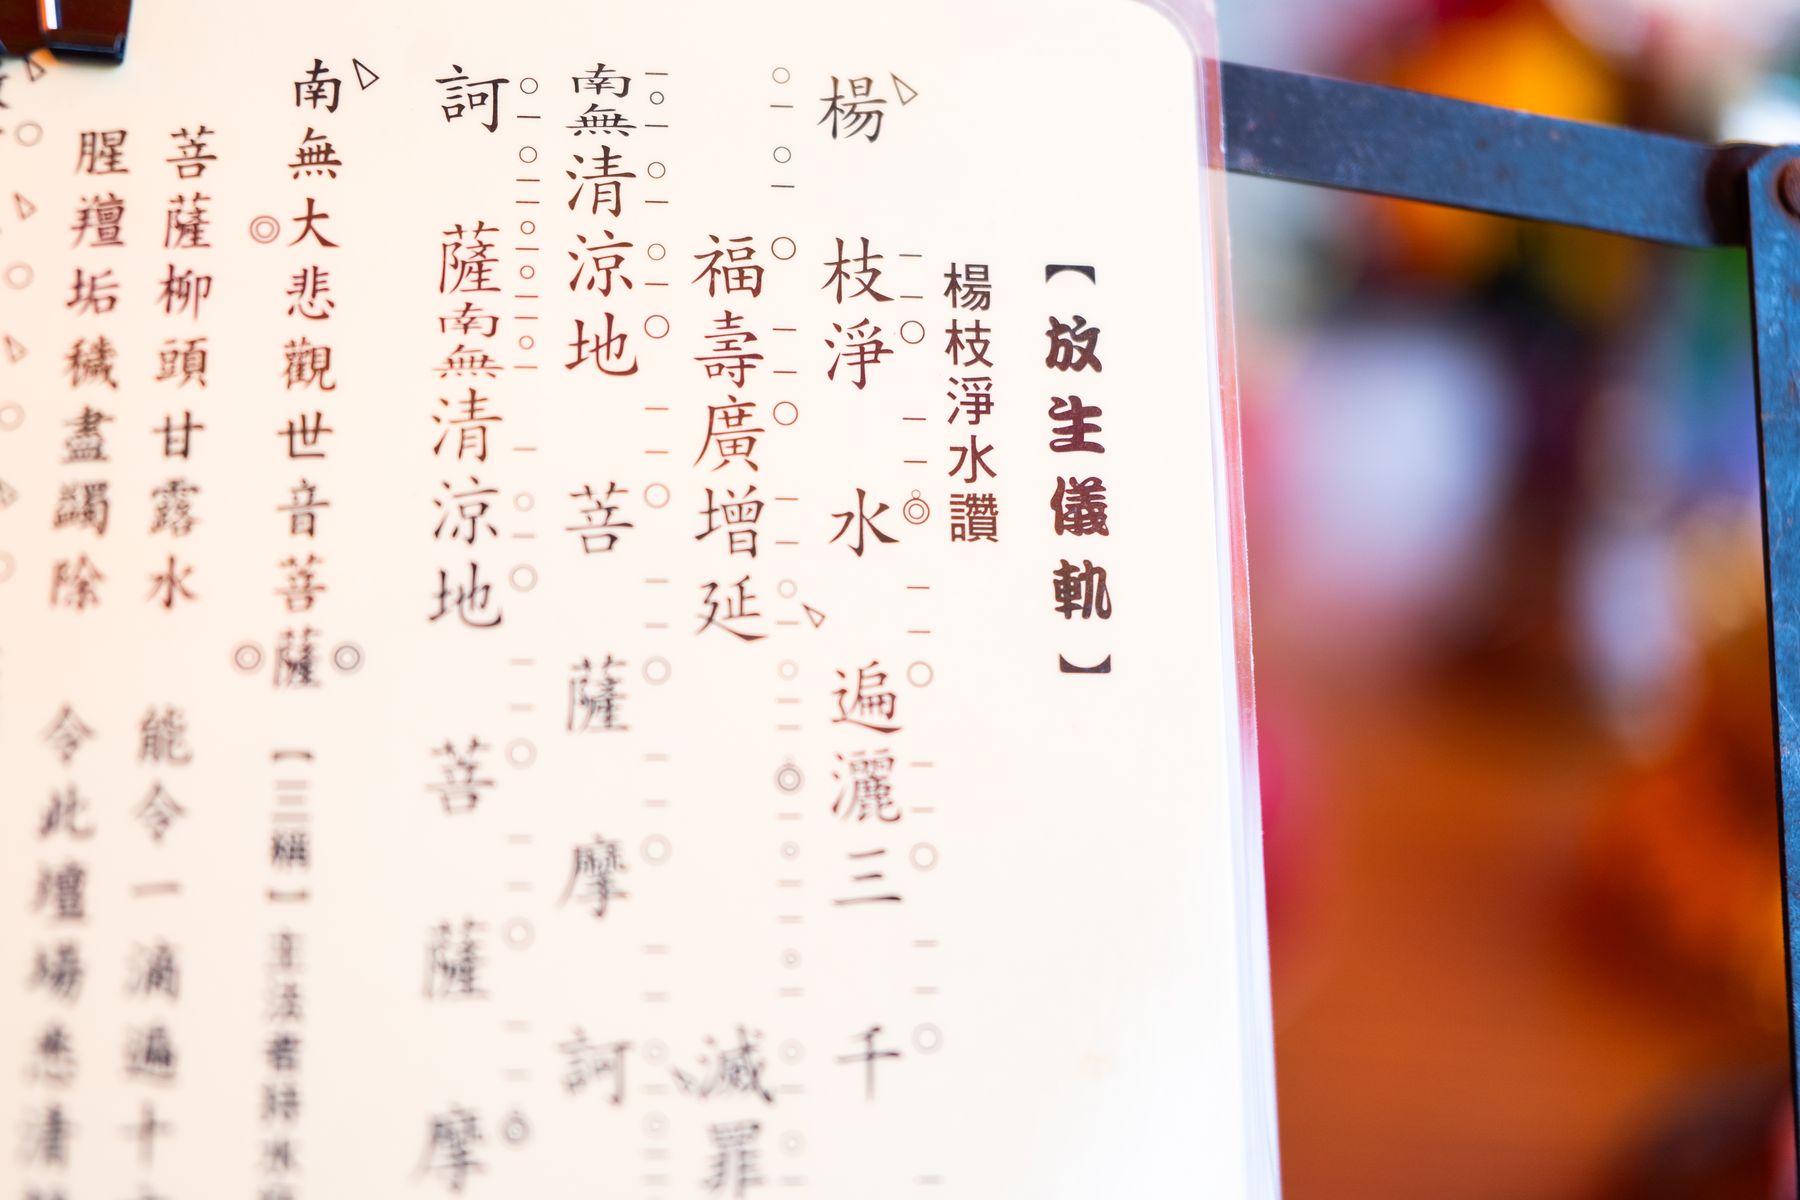 【放生儀軌】
楊枝淨水讚
楊枝淨水遍灑三千
福壽廣增延滅罪
南無清涼地菩薩摩訶
訶薩南無清涼地菩薩摩
南無大悲觀世音菩薩【三稱】主法者持水
菩薩柳頭甘露水 能令一滴遍十
腥羶垢穢盡蠲除 令此壇場悉清